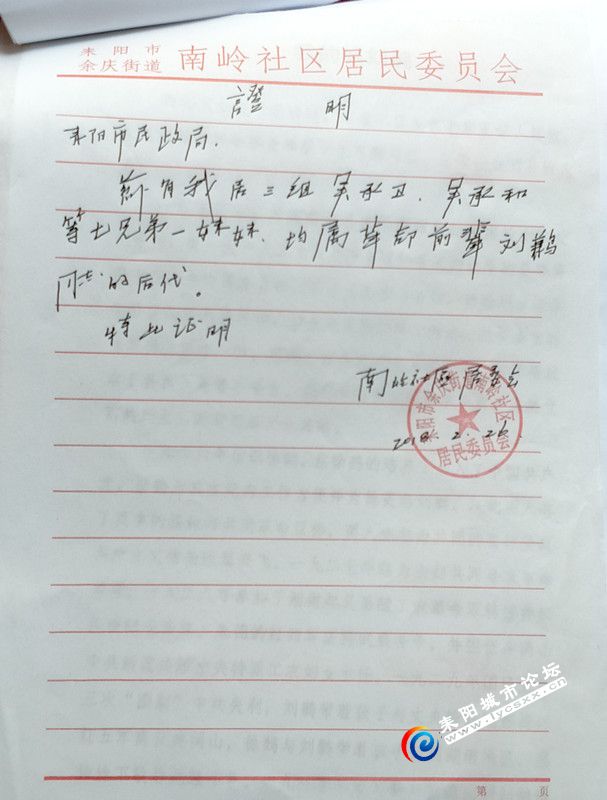 耒阳市
余庆街道 南岭社区居民委员会
證 明
耒阳市民政局.
兹有我居三组吴承卫.吴承和
等七兄弟一妹妹.均属革命前辈刘鹴
同志的后代。
特此证明
南岭社区居委会
2018.2.26
耒阳市余庆街道南岭社区
居民委员会
耒阳城市论坛
www.lycsxx.cn
第 页